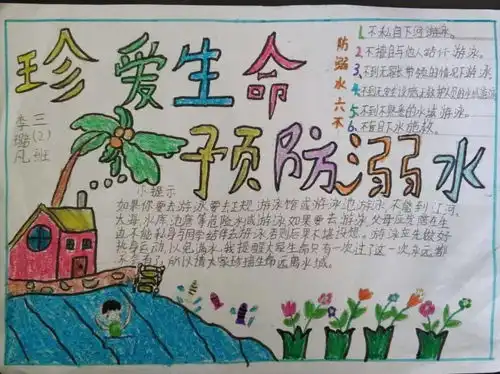 珍爱生命
预防溺水
三(2)班
李璐凡
防溺水六不
1.不私自下河游泳。
2.不擅自与他人结伴游泳。
3.不到无家长带领的情况下游泳
4.不到无安全设施无救护人员的水域游泳
5.不到不熟悉的水域游泳。
6.不盲目下水施救。
小提示
如果你要去游泳要去正规游泳馆或游泳池游泳不能到江河、
大海水库池塘等危险水域游泳如果要去游泳父母应该陪在身
边不能私自与同学结伴去游泳否则后果不堪设想。游泳应先做好
热身运动,以免溺水。我提醒大家生命只有一次过了这一次永远都
不会有了,所以请大家珍惜生命远离水域。